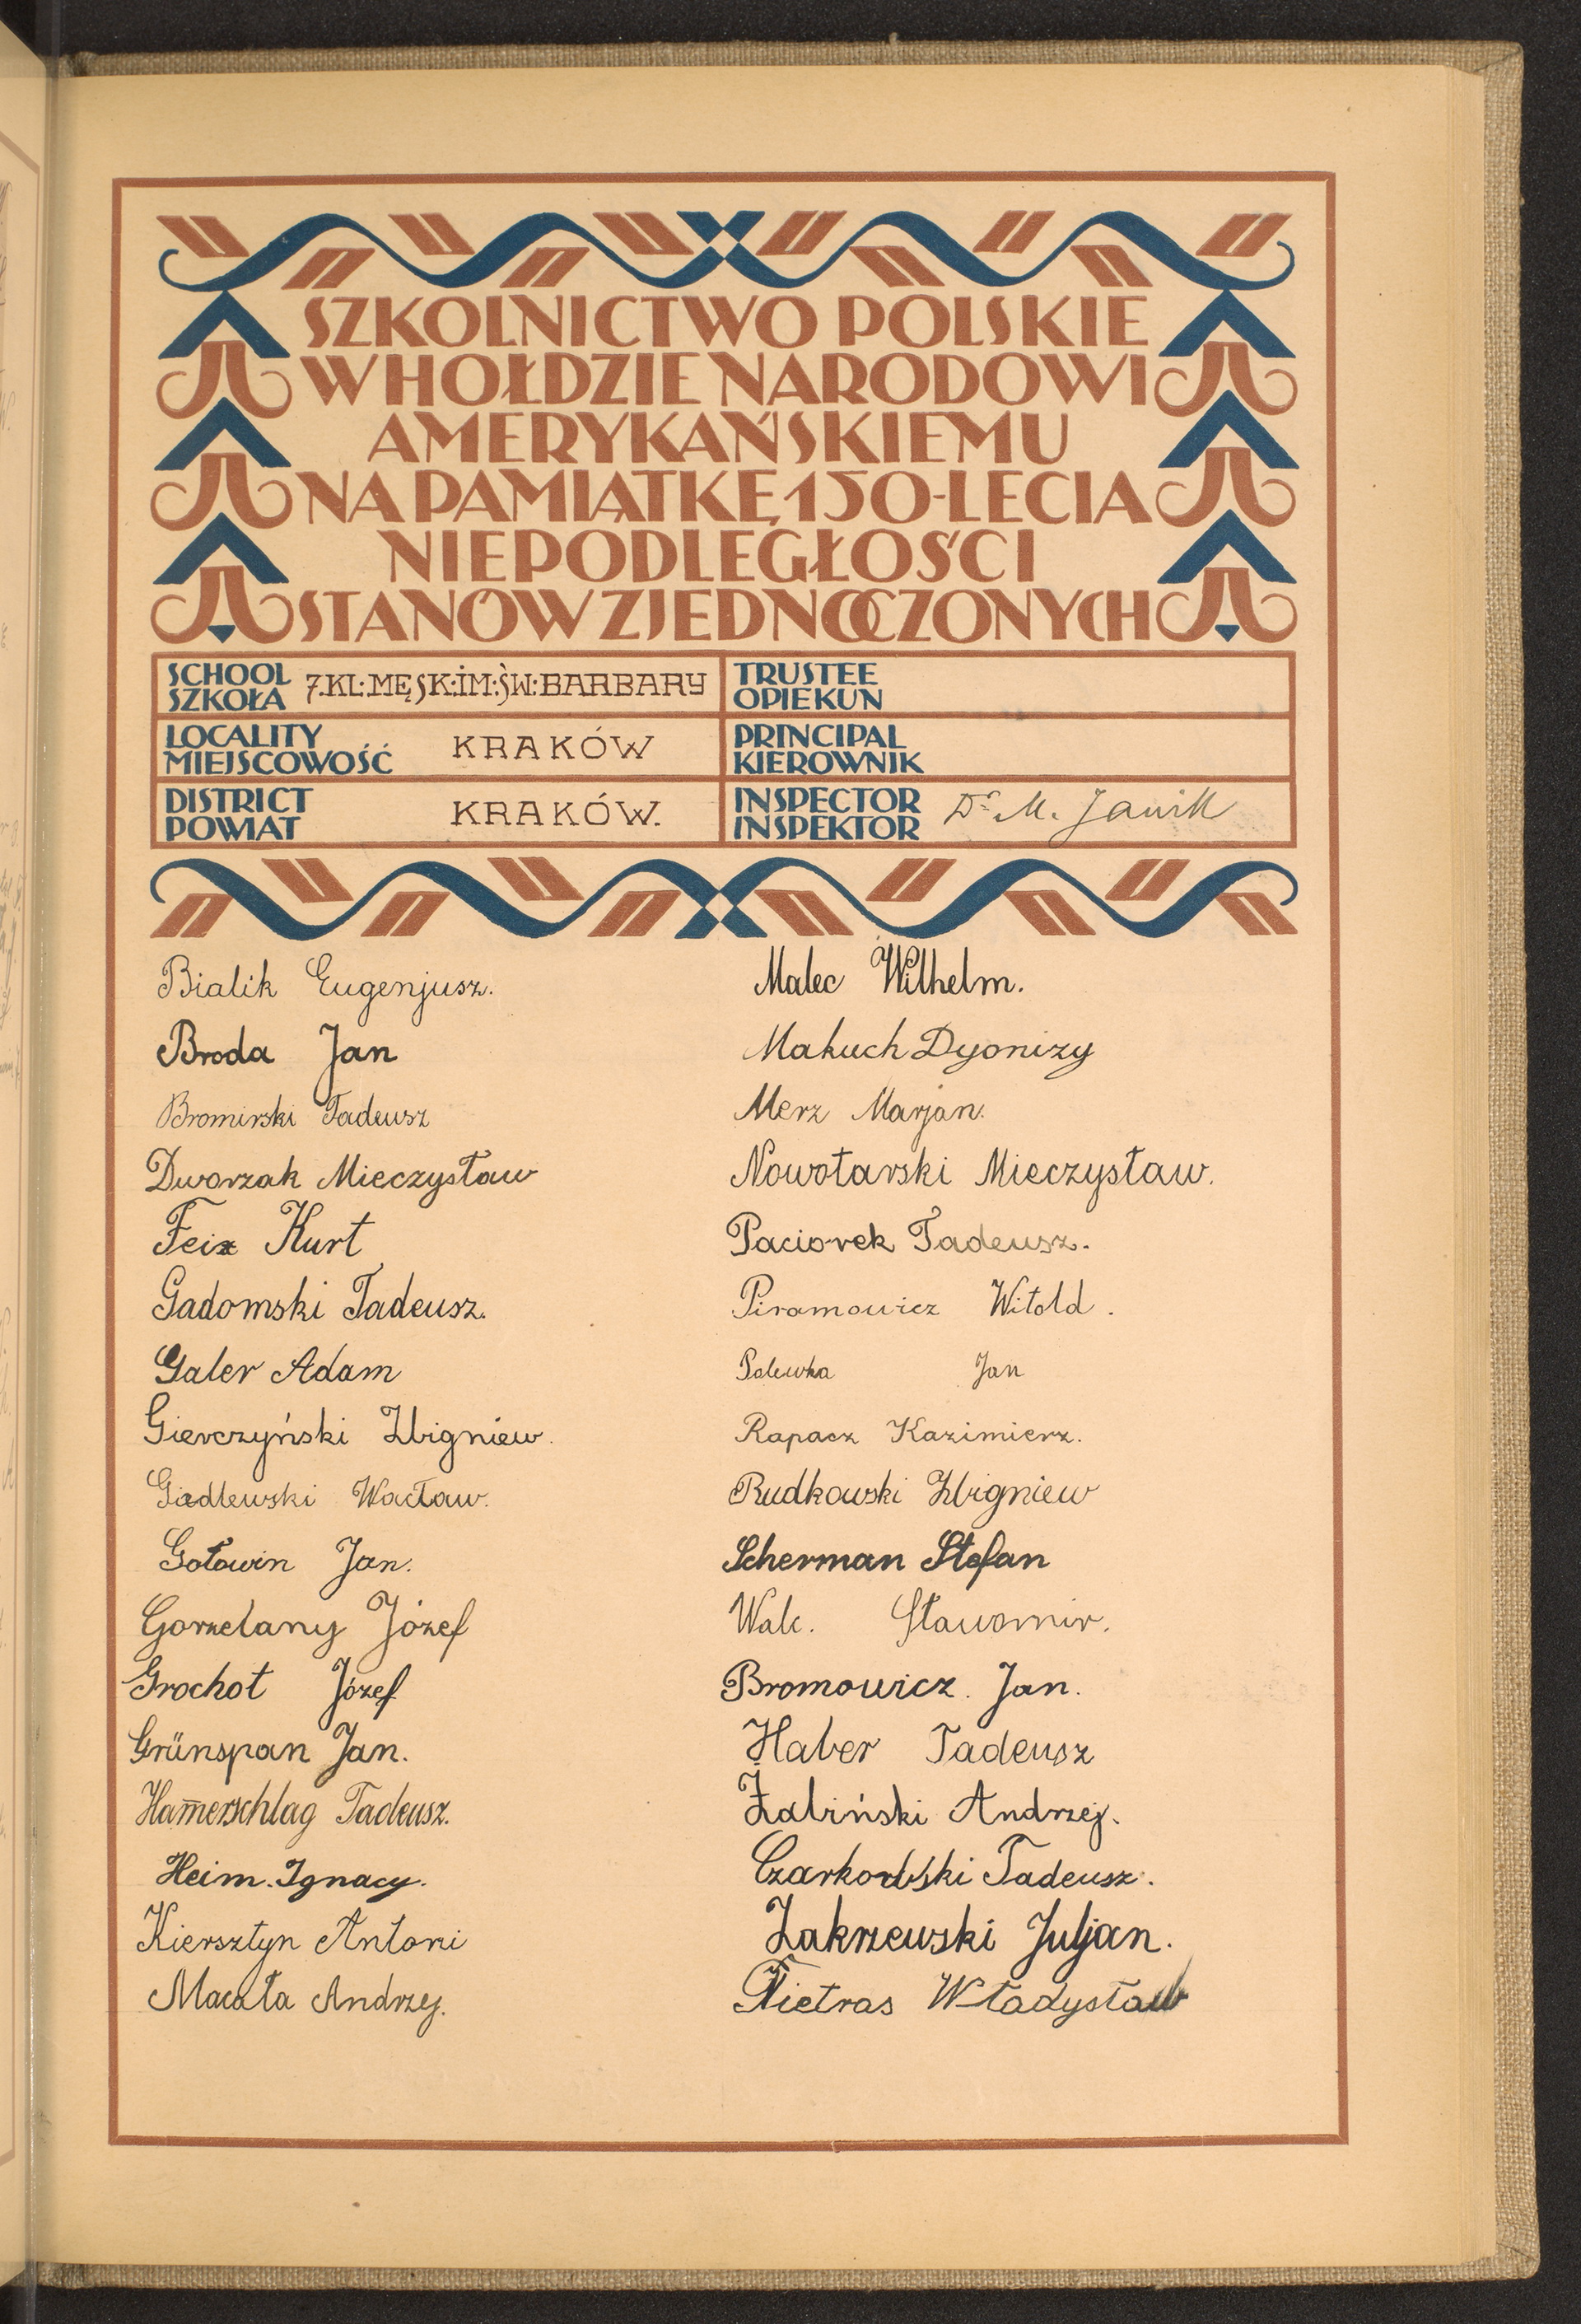 SZKOLNICTWO POLSKIE
W HOŁDZIE NARODOWI
AMERYKAŃSKIEMU
NA PAMIĄTKĘ 150-LECIA
NIEPODLEGŁOŚCI
STANÓW ZJEDNOCZONYCH
SCHOOL
SZKOŁA 7.KL:MĘSK:IM:ŚW:BARBARY
TRUSTEE
OPIEKUN
LOCALITY
MIEJSCOWOŚĆ KRAKÓW
PRINCIPAL
KIEROWNIK
DISTRICT
POWIAT KRAKÓW.
INSPECTOR
INSPEKTOR Dr M. Janik
Bialik Eugenjusz.
Broda Jan
Bromirski Tadeusz
Dworzak Mieczysław
Feix Kurt
Gadomski Tadeusz.
Galer Adam
Gierczyński Zbigniew.
Gadlewski Wacław.
Gołowin Jan.
Gorzelany Józef
Grochot Józef
Grünspan Jan.
Ham̅erschlag Tadeusz.
Heim. Ignacy.
Kiersztyn Antoni
Macała Andrzej.
Malec Wilhelm.
Makuch Dyonizy
Merz Marjan.
Nowotarski Mieczysław.
Paciorek Tadeusz.
Piramowicz Witold.
Polewka Jan
Rapacz Kazimierz.
Rudkowski Zbigniew
Scherman Stefan
Walc. Sławomir.
Bromowicz. Jan.
Haber Tadeusz
Żabiński Andrzej.
Czarkowski Tadeusz.
Zakrzewski Juljan.
Pietras Władysław